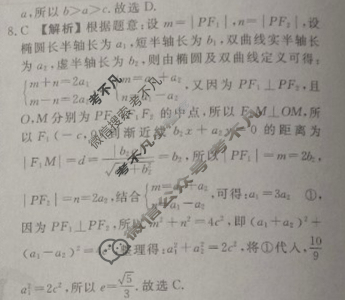 a,所以 b>a>c.故选 D.
8.C 【解析】根据题意:设 m=|PF₁|,n=|PF₂|,设
椭圆长半轴长为 a₁,短半轴长为 b₁,双曲线实半轴长
为 a₂,虚半轴长为 b₂,则由椭圆及双曲线定义可得:
{m+n=2a₁ m-n=2a₂ {m=a₁+a₂ n=a₁-a₂,又因为 PF₁⊥PF₂,且
O,M 分别为 F₁F₂ 的中点,所以 F₁M⊥OM,所
以 F₁(-c, 到渐近线 b₂x+a₂ 0 的距离为
|F₁M|=d= =b₂,所以 |PF₁|=m=2b₂,
|PF₂|=n=2a₂,结合 {m= +a₂ -a₂,可得:a₁=3a₂ ①,
因为 PF₁⊥PF₂,所以 m²+n²=4c²,即 (a₁+a₂)²+
(a₁-a₂)²= 整理得:a₁²+a₂²=2c²,将①代入,10/9
a₁²=2c²,所以 e=√5/3.故选 C.
考不凡
微信搜索
考不凡
微信公众号